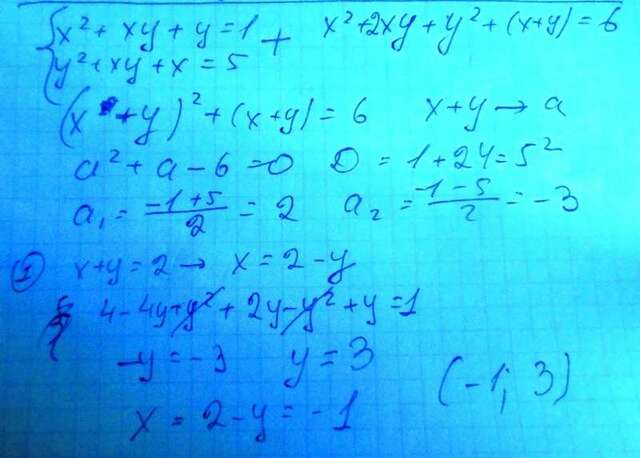 { x² + xy + y = 1 + x² + 2xy + y² + (x+y) = 6
y² + xy + x = 5
(x + y)² + (x + y) = 6 x + y → a
a² + a - 6 = 0 D = 1 + 24 = 5²
a₁ = (-1 + 5)/2 = 2 a₂ = (-1 - 5)/2 = -3
① x + y = 2 → x = 2 - y
4 - 4y + y² + 2y - y² + y = 1
-y = -3 y = 3
(-1; 3)
x = 2 - y = -1